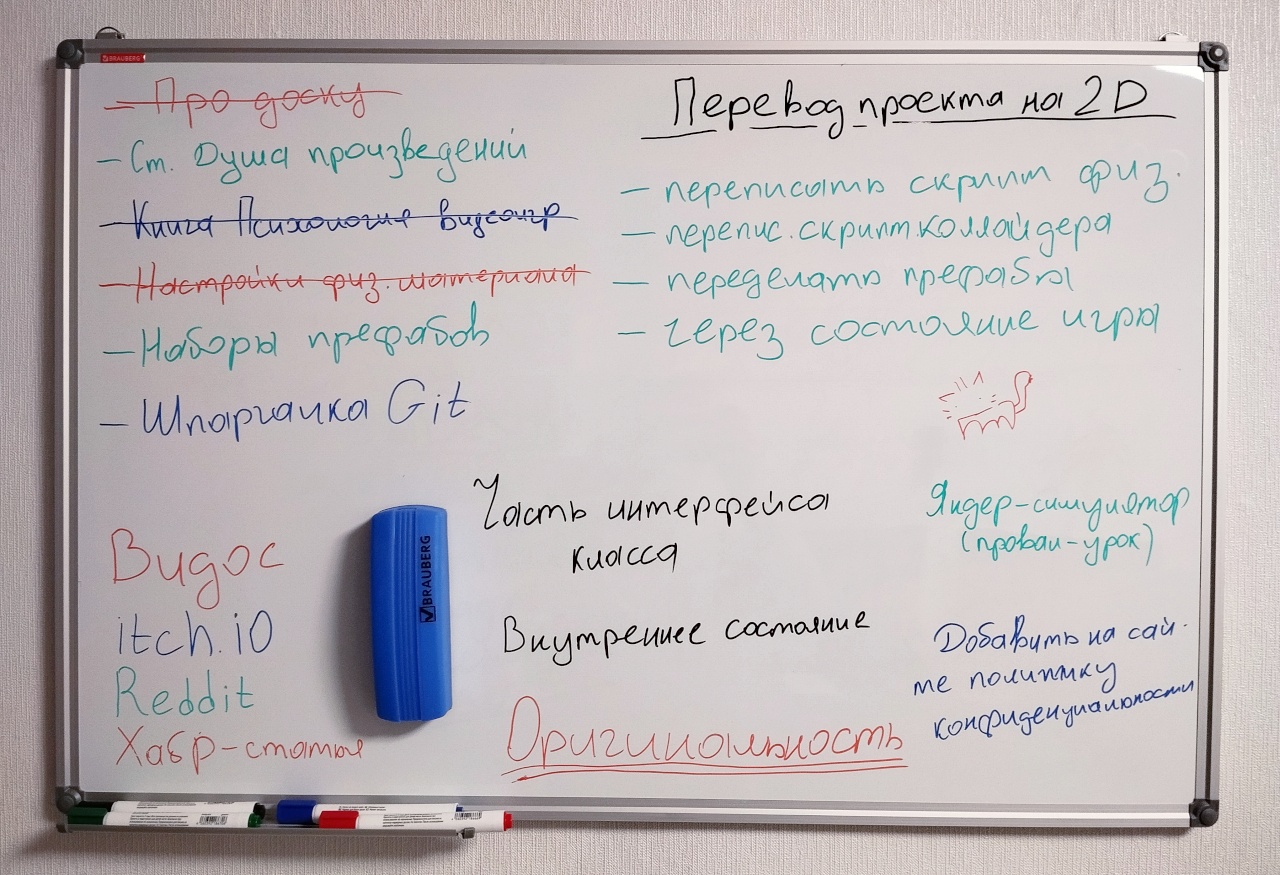 BRAUBERG
— Про доску
— Ст. Душа произведений
— Книга Психология видеоигр
— Настройки физ. материала
— Наборы префабов
— Шпаргалка Git
Перевод проекта на 2D
— переписать скрипт физ.
— перепис. скрипт. коллайдера
— переделать префабы
— через состояние игры
Видос
itch.io
Reddit
Хабр-статья
BRAUBERG
Часть интерфейса
класса
Внутреннее состояние
Оригинальность
Яндер-симулятор
(провал-урок)
Добавить на сай-
те политику
конфиденциальности